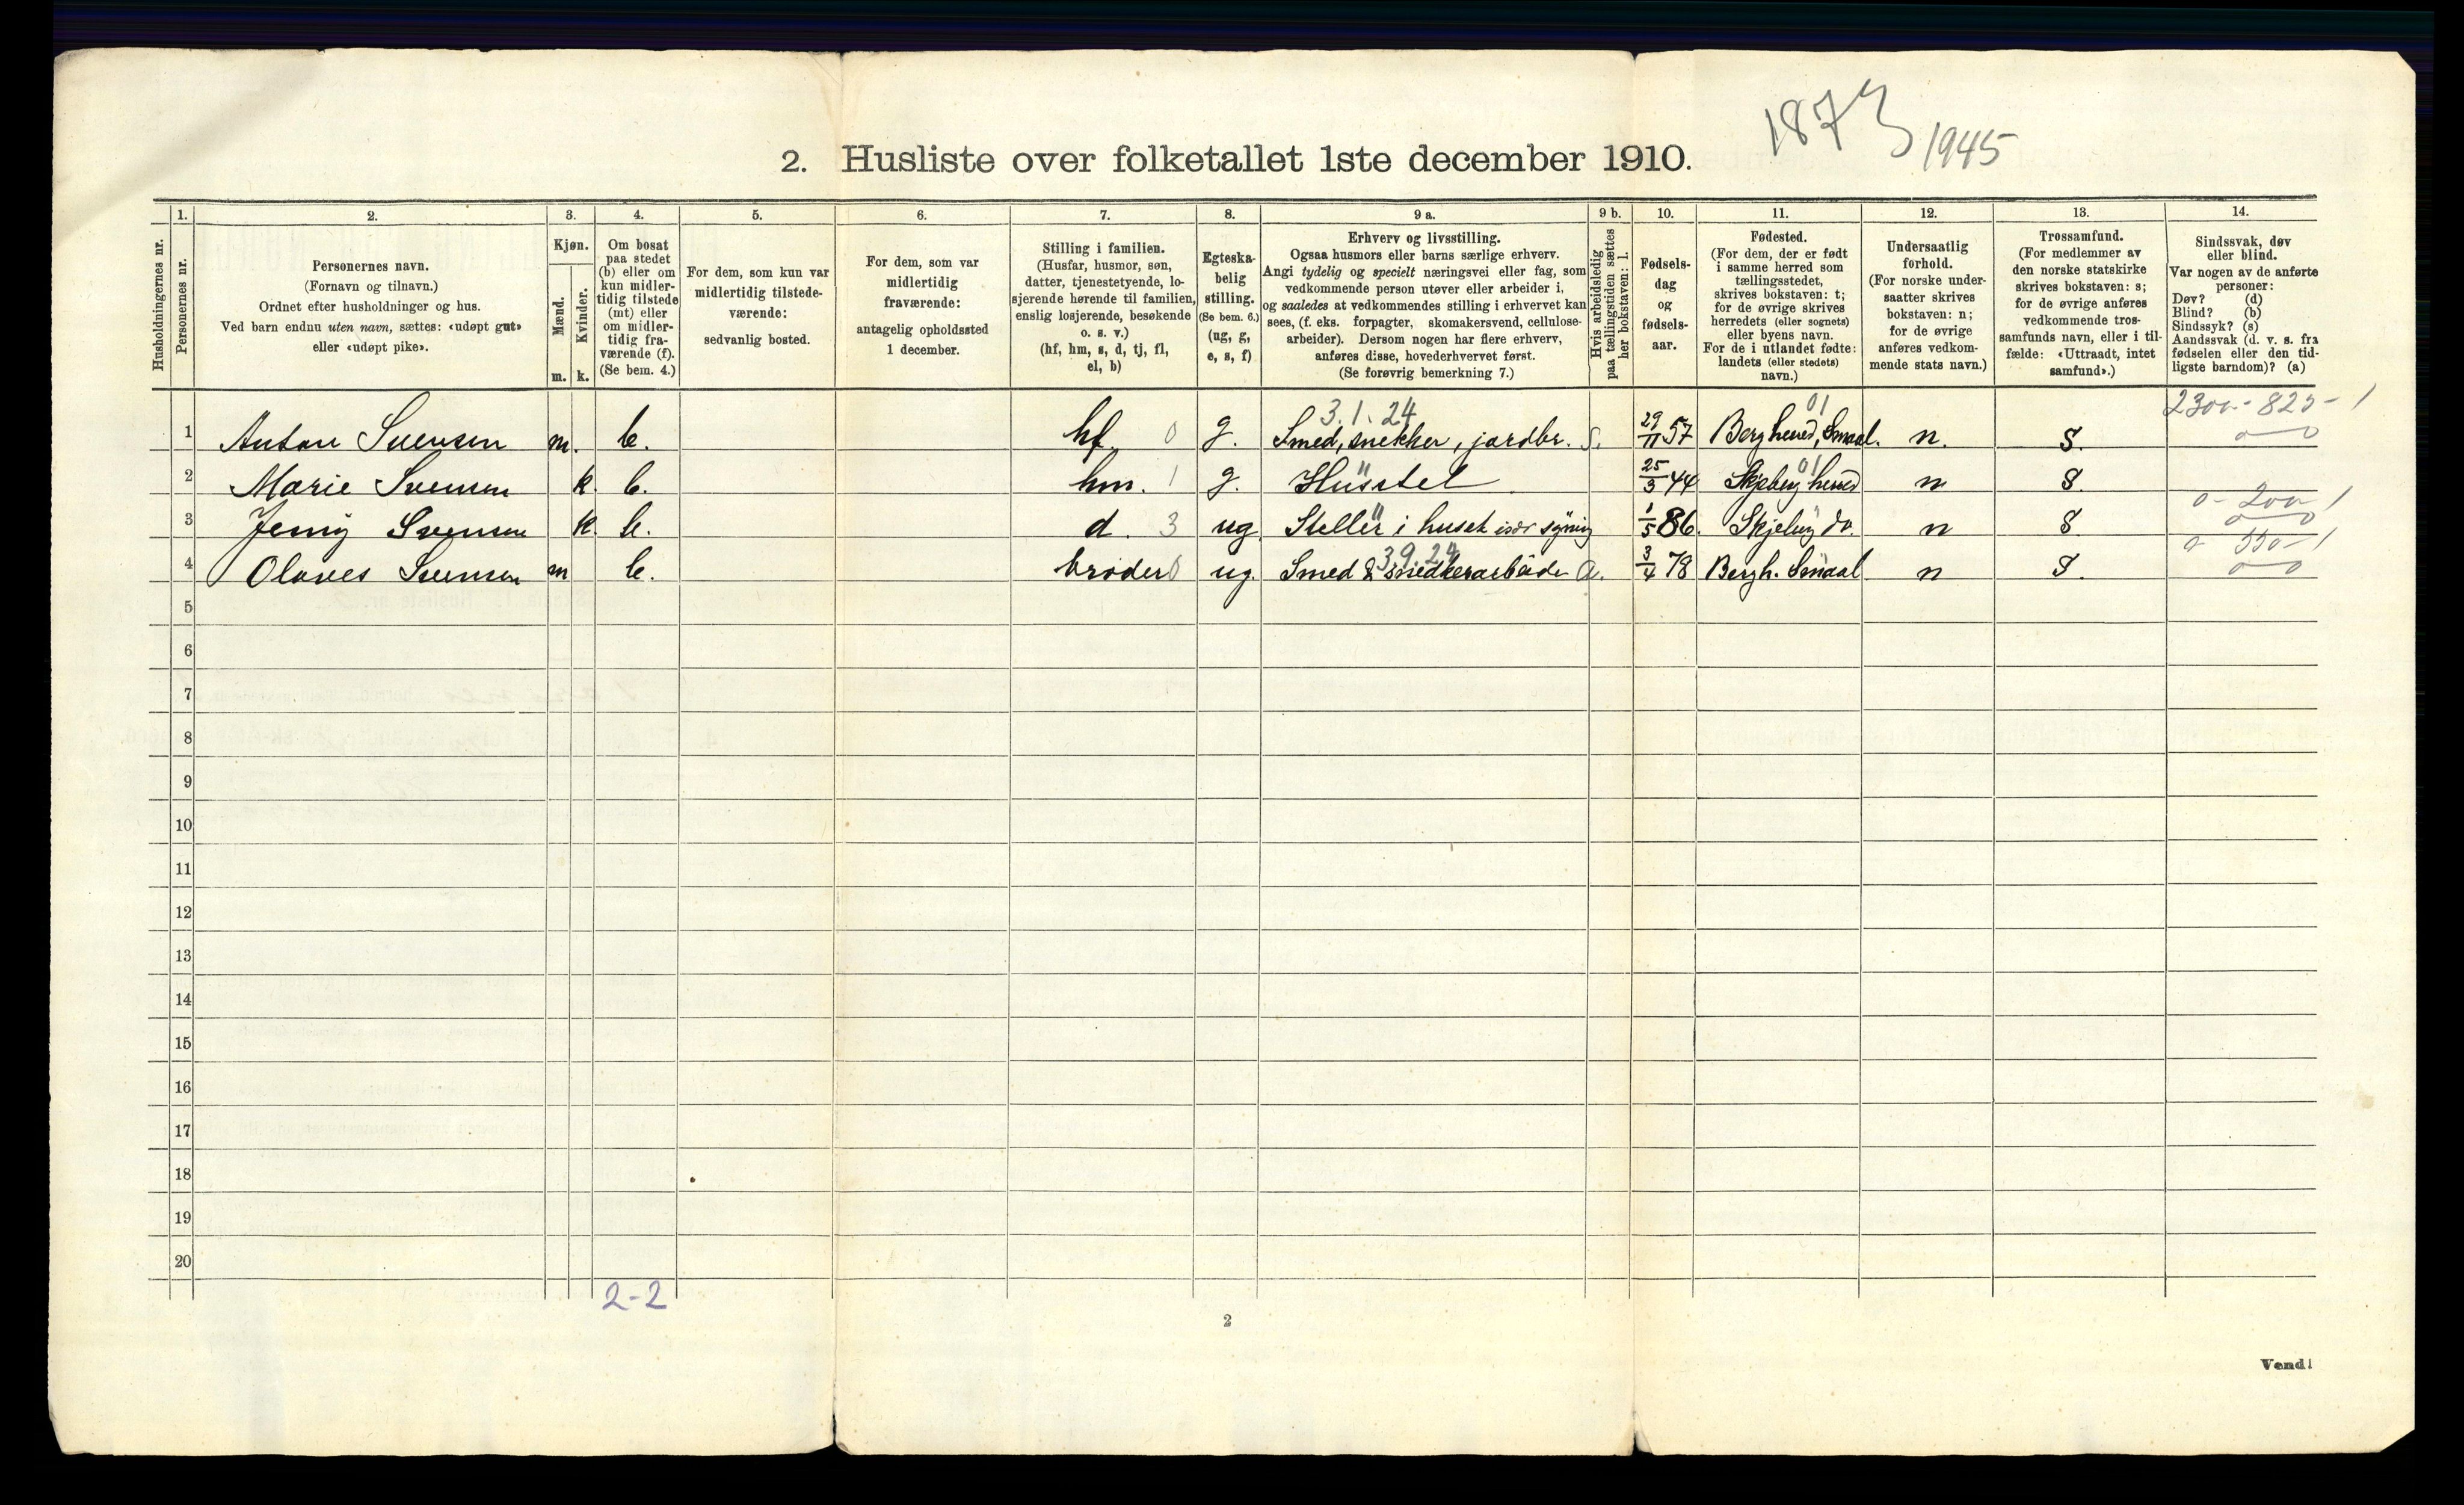 1873
1945
2. Husliste over folketallet 1ste december 1910.
Husholdningernes nr.
1.
Personernes nr.
2.
Personernes navn.
(Fornavn og tilnavn.)
Ordnet efter husholdninger og hus.
Ved barn endnu uten navn, sættes: «udøpt gut»
eller «udøpt pike».
3.
Kjøn.
Mænd.
Kvinder.
m. k.
4.
Om bosat
paa stedet
(b) eller om
kun midler-
tidig tilstede
(mt) eller
om midler-
tidig fra-
værende (f).
(Se bem. 4.)
5.
For dem, som kun var
midlertidig tilstede-
værende:
sedvanlig bosted.
6.
For dem, som var
midlertidig
fraværende:
antagelig opholdssted
1 december.
7.
Stilling i familien.
(Husfar, husmor, søn,
datter, tjenestetyende, lo-
sjerende hørende til familien,
enslig losjerende, besøkende
o. s. v.)
(hf, hm, s, d, tj, fl,
el, b)
8.
Egteska-
belig
stilling.
(Se bem. 6.)
(ug, g,
e, s, f)
9 a.
Erhverv og livsstilling.
Ogsaa husmors eller barns særlige erhverv.
Angi tydelig og specielt næringsvei eller fag, som
vedkommende person utøver eller arbeider i,
og saaledes at vedkommendes stilling i erhvervet kan
sees, (f. eks. forpagter, skomakersvend, cellulose-
arbeider). Dersom nogen har flere erhverv,
anføres disse, hovederhvervet først.
(Se forøvrig bemerkning 7.)
9 b.
Hvis arbeidsledig
paa tællingstiden sættes
her bokstaven: l.
10.
Fødsels-
dag
og
fødsels-
aar.
11.
Fødested.
(For dem, der er født
i samme herred som
tællingsstedet,
skrives bokstaven: t;
for de øvrige skrives
herredets (eller sognets)
eller byens navn.
For de i utlandet fødte:
landets (eller stedets)
navn.)
12.
Undersaatlig
forhold.
(For norske under-
saatter skrives
bokstaven: n;
for de øvrige
anføres vedkom-
mende stats navn.)
13.
Trossamfund.
(For medlemmer av
den norske statskirke
skrives bokstaven: s;
for de øvrige anføres
vedkommende tros-
samfunds navn, eller i til-
fælde: «Uttraadt, intet
samfund».)
14.
Sindssvak, døv
eller blind.
Var nogen av de anførte
personer:
Døv? (d)
Blind? (b)
Sindssyk? (s)
Aandssvak (d. v. s. fra
fødselen eller den tid-
ligste barndom)? (a)
3.1.24 01 2300 - 825 - 1
1 Anton Svensen m. b. hf. 0 g. Smed, snekker, jordbr. S. 29/11 57 Berg herred, Smaal. n. S. 0 0
01
2 Marie Svensen k. b. hm. 1 g. Hüsstel 25/3 44 Skjeberg herred n S.
0 - 200 - 1
3 Jenny Svensen k. b. d. 3 ug. Steller i huset især syning 1/5 86. Skjeberg do. n S 0 0
3 9.24 0 550 - 1
4 Olaves Svensen m b. broder 0 ug. Smed & snedkerarbeide a. 3/4 78 Berg h. Smaal n S. 0 0
5
6
7
8
9
10
11
12
13
14
15
16
17
18
19
20
2-2
2
Vend!